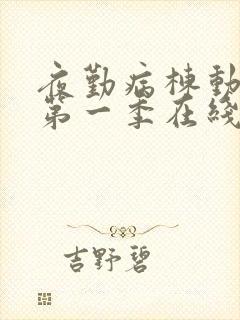 夜勤病棟動
第一季在綫
吉野碧